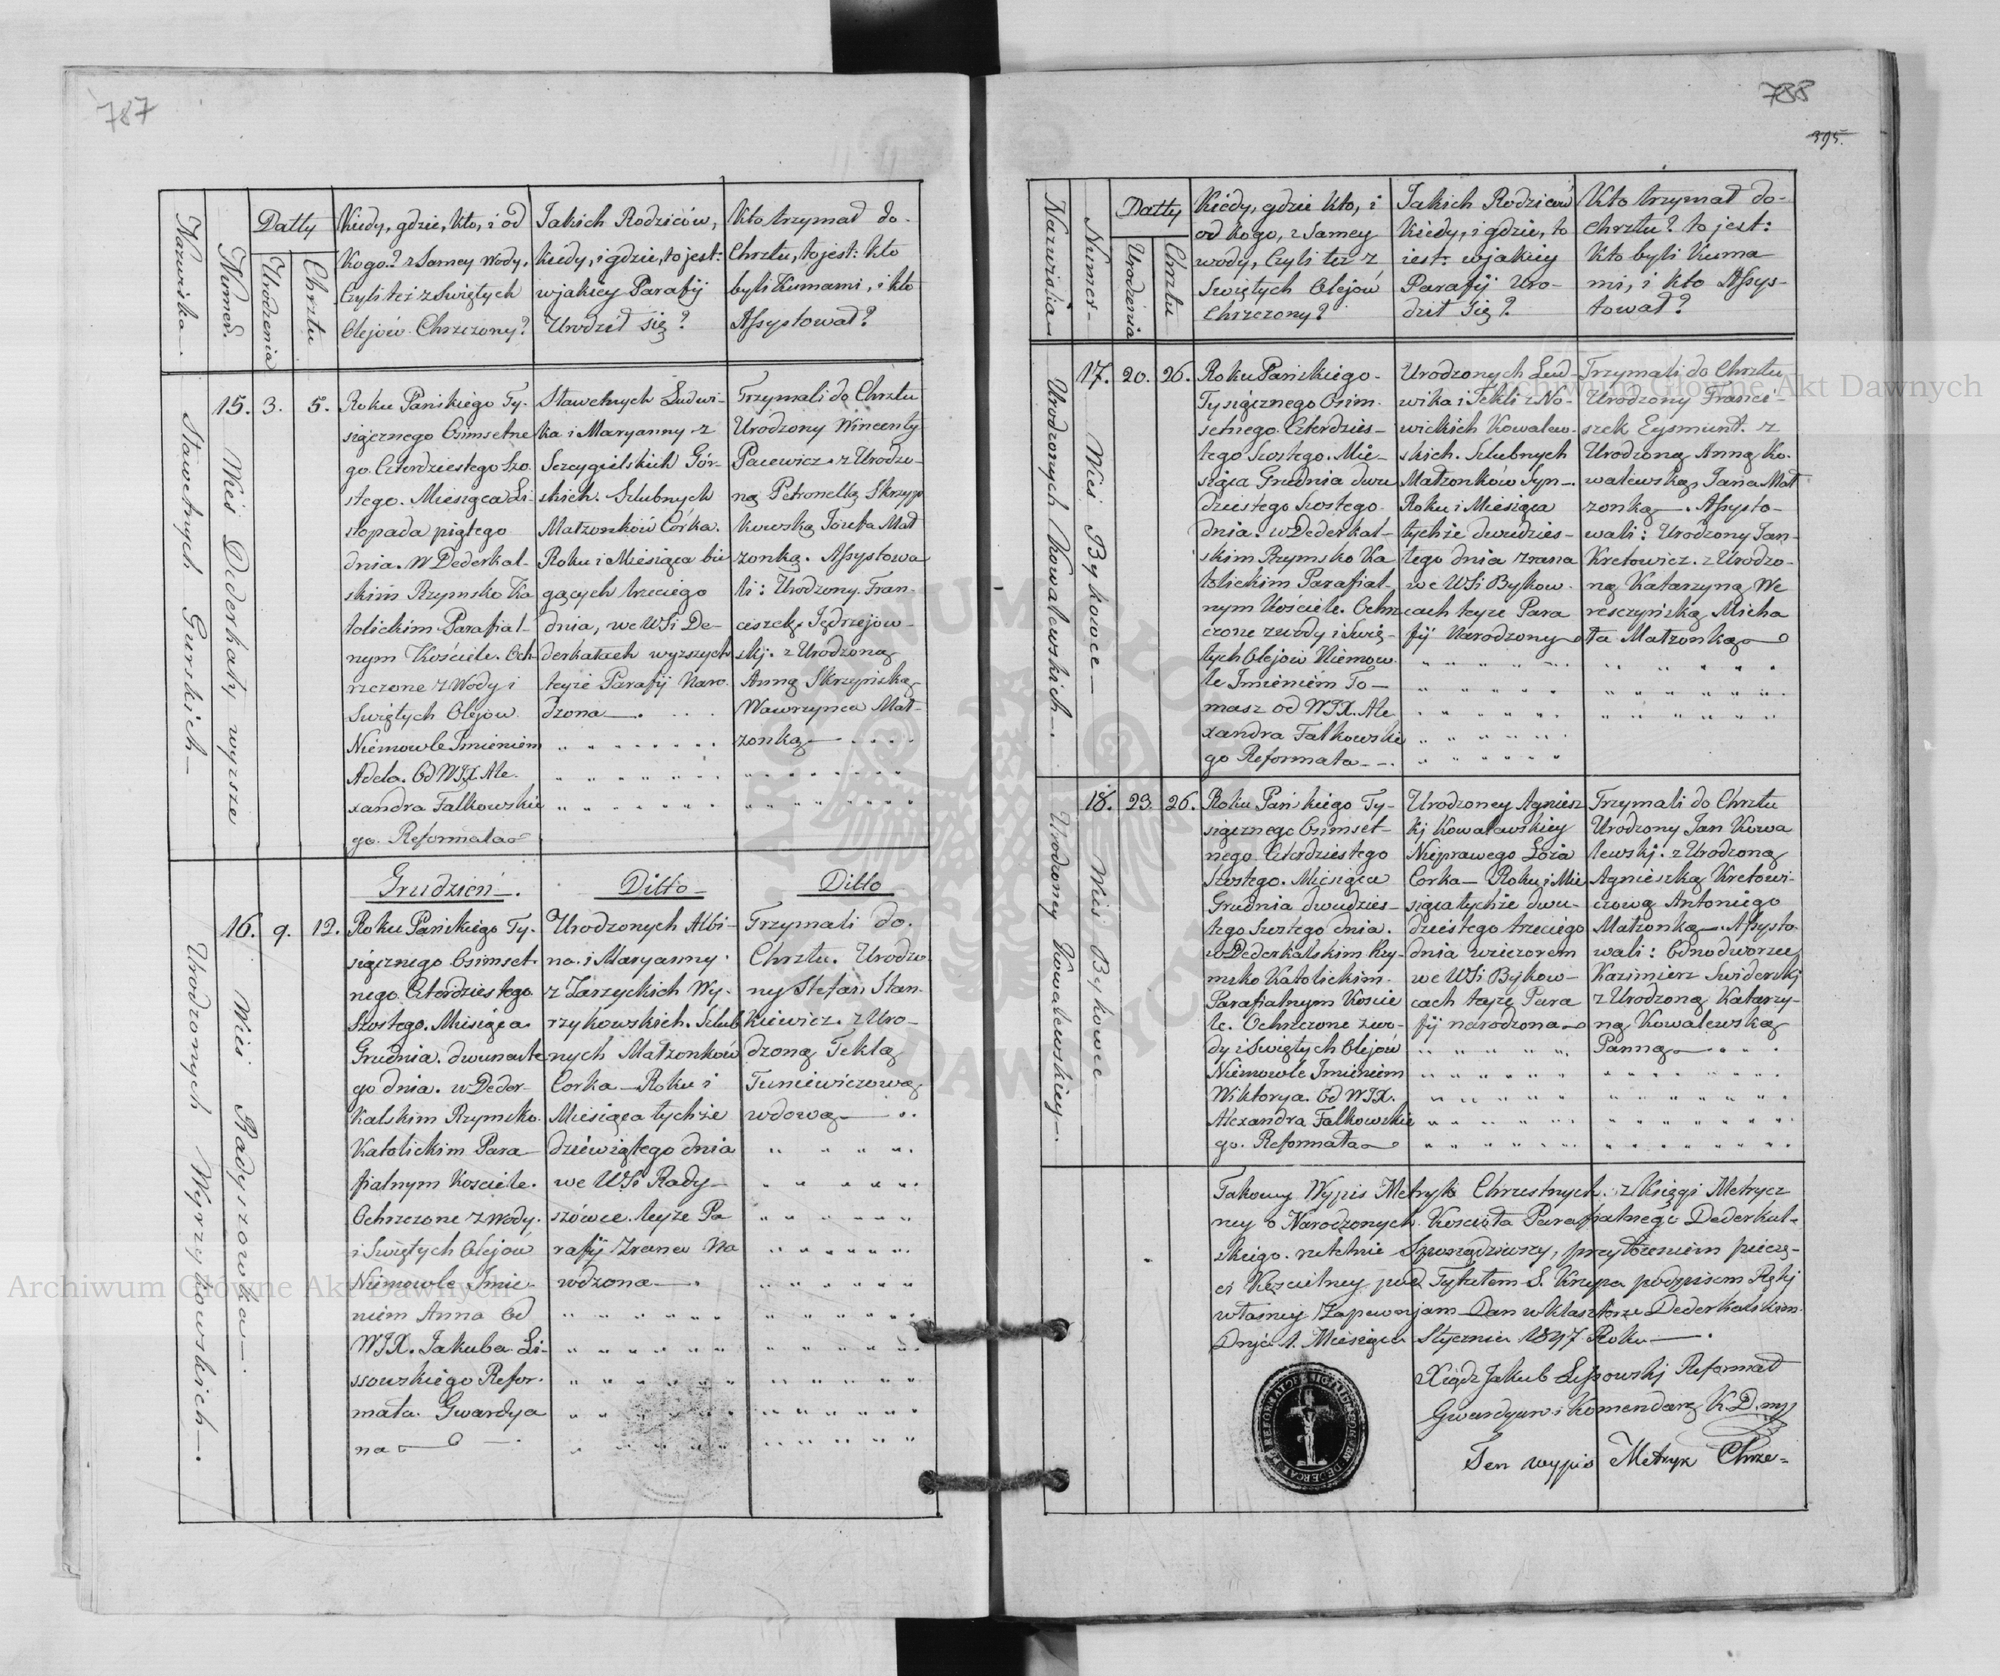 787
Nazwiska.
Numer.
Datty
Urodzenia
Chrztu
Kiedy, gdzie, kto, i od
Kogo? z Samey Wody,
Czyli też z Świętych
Olejów Chrzczony?
Jakich Rodziców,
kiedy, i gdzie, to jest:
w jakiey Parafij
Urodził się?
Kto trzymał do
Chrztu, to jest: kto
byli Kumami, i kto
Assystował?
Sławetnych Gurskich
15.
Wieś Dederkały wyższe
3.
5.
Roku Pańskiego Ty-
siącznego Osimsetne
go Czterdziestego Szo
stego. Miesiąca Li-
stopada piątego
dnia. W Dederkal-
skim Rzymsko Ka
tolickim Parafial-
nym Kościele. Och-
rzczone z Wody i
Świętych Olejów
Niemowle Imieniem
Adela. Od WJX Ale-
xandra Falkowskie
go Reformata
Sławetnych Ludwi-
ka i Maryanny z
Szczygielskich Gór-
skich. Szlubnych
Małżonków Córka.
Roku i Miesiąca bie
gących trzeciego
dnia, we WSi De-
derkałach wyższych
teyże Parafij Naro
dzona
Trzymali do Chrztu
Urodzony Wincenty
Pacewicz z Urodzo-
ną Petronellą Skrzyp
kowską Józefa Mał
żonką. Assystowa
li: Urodzony Fran-
ciszek Jędrzejow-
skj. z Urodzoną
Anną Skrzyńską
Wawrzyńca Mał-
żonką
Urodzonych Wyrzykowskich
16.
Wieś Radyszówka
9.
12.
Grudzień
Roku Pańskiego Ty-
siącznego Osimset-
nego Czterdziestego
Szostego. Miesiąca
Grudnia. dwunaste
go dnia. w Deder-
kalskim Rzymsko
Katolickim Para
fialnym Kościele.
Ochrzczone z Wody.
i Świętych Olejów
Niemowle Imie-
niem Anna Od
WJX. Jakuba Li-
ssowskiego Refor-
mata. Gwardya
na
Ditto
Urodzonych Albi-
na i Maryanny
z Zarzyckich Wy-
rzykowskich. Szlub
nych Małżonków
Corka Roku i
Miesiąca tychże
dziewiątego dnia
we WSi Rady-
szówce teyże Pa
rafij Zrana Na
rodzona
Ditto
Trzymali do
Chrztu. Urodzo
ny Stefan Stan-
kiewicz. z Uro-
dzoną Teklą
Tuniewiczową
wdową
788
395.
Nazwiska
Numer
Datty
Urodzenia
Chrztu
Kiedy, gdzie kto, i
od Kogo, z Samey
wody, Czyli też z
Świętych Olejów
Chrzczony?
Jakich Rodziców
Kiedy, i gdzie, to
iest: w jakiey
Parafij Uro-
dził Się?
Kto trzymał do-
Chrztu? to jest:
Kto byli Kuma
mi, i kto Assys-
tował?
Urodzonych Kowalewskich
17.
Wieś Bykowce
20.
26.
Roku Pańskiego
Tysiącznego Osim-
setnego Czterdzies-
tego Szostego. Mie-
siąca Grudnia dwu
dziestego Szostego
dnia. w Dederkal-
skim Rzymsko Ka
tolickim Parafial-
nym Kościele. Ochrz
czone z wody i Świę-
tych Olejów Niemow-
le Imieniem To-
masz Od WJX. Ale
xandra Falkowskie
go Reformata
Urodzonych Lud-
wika i Tekli z No-
wickich Kowalew-
skich. Szlubnych
Małżonków Syn
Roku i Miesiąca
tychże dwudzies-
tego dnia zrana
we WSi Bykow
cach teyże Para
fij Narodzony
Trzymali do Chrztu
Urodzony Franci-
szek Eysmunt z
Urodzoną Anną Ko-
walewską Jana Mał
żonką. Assysto-
wali: Urodzony Jan
Kretowicz z Urodzo-
ną Katarzyną We
reszczyńską Micha
ła Małżonką
Urodzoney Kowalewskiey
18.
Wieś Bykowce
23.
26.
Roku Pańskiego Ty-
siącznego Osimset-
nego Czterdziestego
Szostego. Miesiąca
Grudnia dwudzies-
tego Szostego dnia.
w Dederkalskim Rzy-
msko Katolickim
Parafialnym Koście
le. Ochrzczone z wo-
dy i Świętych Olejów
Niemowle Imieniem
Wiktorya. Od WJX.
Alexandra Falkowskie
go. Reformata
Urodzoney Agniesz
kj Kowalewskiey
Nieprawego Łoża
Corka Roku i Mie
siąca tychże dwu-
dziestego trzeciego
dnia wieczorem
we WSi Bykow-
cach teyże Para
fij narodzona
Trzymali do Chrztu
Urodzony Jan Kowa
lewskj. z Urodzoną
Agnieszką Kretowi-
czową Antoniego
Małżonką. Assysto
wali: Odnodworzec
Kazimierz Swiderskj
z Urodzoną Katarzy-
ną Kowalewską
Panną
Takowy Wypis Metryk Chrzestnych. z Księgi Metrycz
ney o Narodzonych. Kościoła Parafialnego Dederkal-
skiego. rzetelnie Sporządziwszy, przyłożeniem pieczę-
ci Kościelney pod Tytułem S. Krzyża podpisem Rękj
własney Zapewnjam Dan w Klasztorze Dederkalskim
Dnja 1. Miesiąca Stycznia 1847 Roku
Xiądz Jakub Lissowskj Reformat
Gwardyan i Komendarz K. D. mp
Ten wypis Metryk Chrze-
Archiwum Główne Akt Dawnych
Archiwum Główne Akt Dawnych